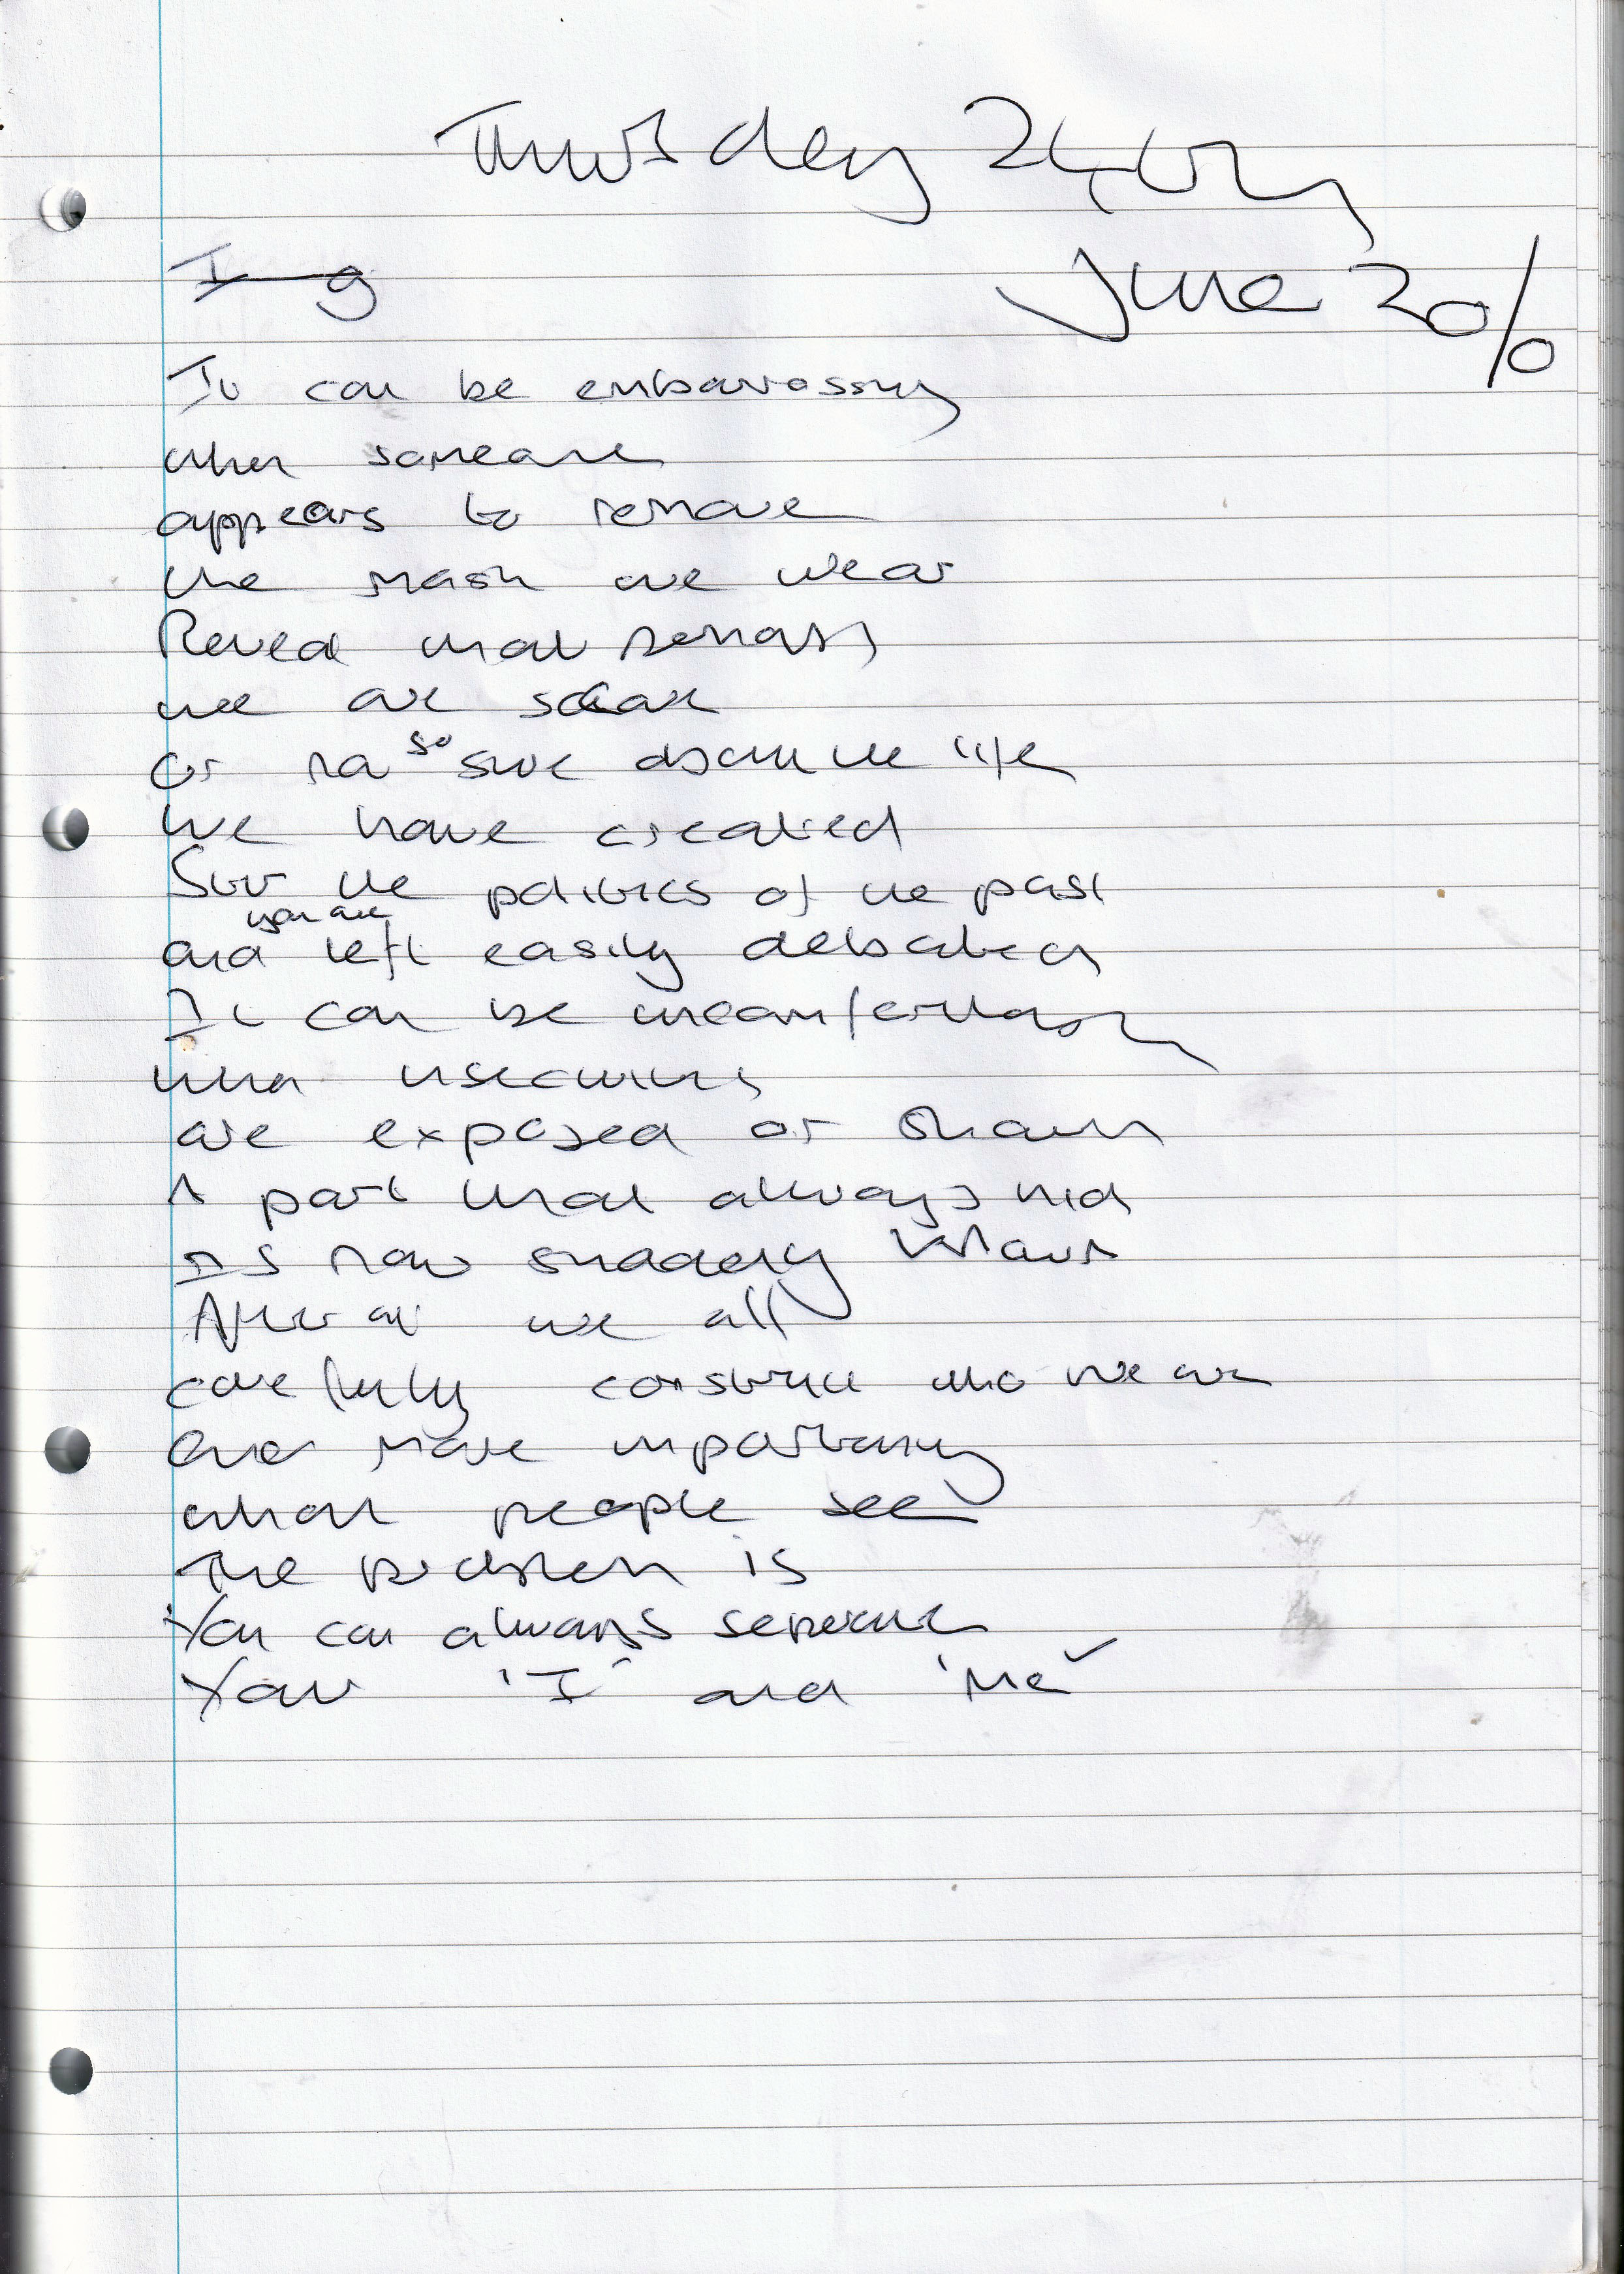 Thursday 24th
June 2010
I g
It can be embarrassing
when someone
appears to remove
the mask we wear
Reveal that perhaps
we are
or not so sure about the life
We have created
Stir the politics of the past
and you are left easily debated
It can be uncomfortable
when insecurities
are exposed or shown
A part that always hid
Is now suddenly known
After all we all
carefully construct who we are
and more importantly
what people see
The problem is
You can always separate
Your 'I' and 'Me'